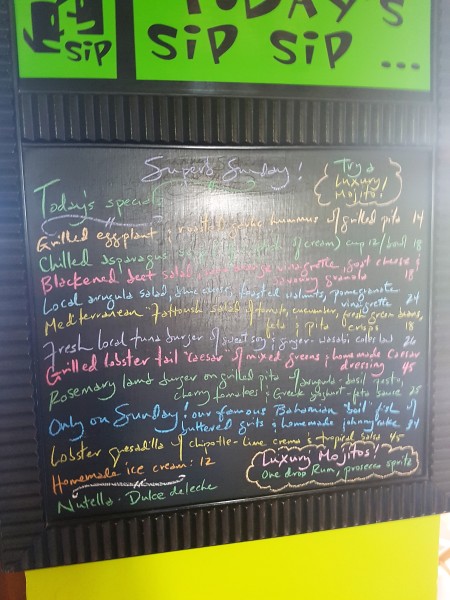 SIP
TODAY'S
SIP SIP ...
Superb Sunday!
Try a
Luxury
Mojito!
Today's specials
Grilled eggplant & roasted garlic hummus w/ grilled pita 14
Chilled asparagus cream) cup 12/bowl 18
Blackened beet salad, vinaigrette, goat cheese &
savoury granola 18
Local arugula salad, toasted walnuts, pomegranate
vinaigrette 24
Mediterranean Fattoush salad w/ tomato, cucumber, fresh green beans,
feta & pita crisps 18
Fresh local tuna burger w/ sweet soy & ginger-wasabi coleslaw 26
Grilled lobster tail "Caesar" w/ mixed greens & homemade Caesar
dressing 45
Rosemary lamb burger on grilled pita w/ arugula-basil pesto,
cherry tomatoes & Greek yoghurt-feta sauce 25
Only on Sunday! our famous Bahamian boil fish w/
buttered grits & homemade johnnycake 24
Lobster quesadilla w/ chipotle-lime crema & tropical salsa 45
Homemade ice cream: 12
Nutella. Dulce de leche
Luxury Mojitos!
One drop Rum, prosecco spritz